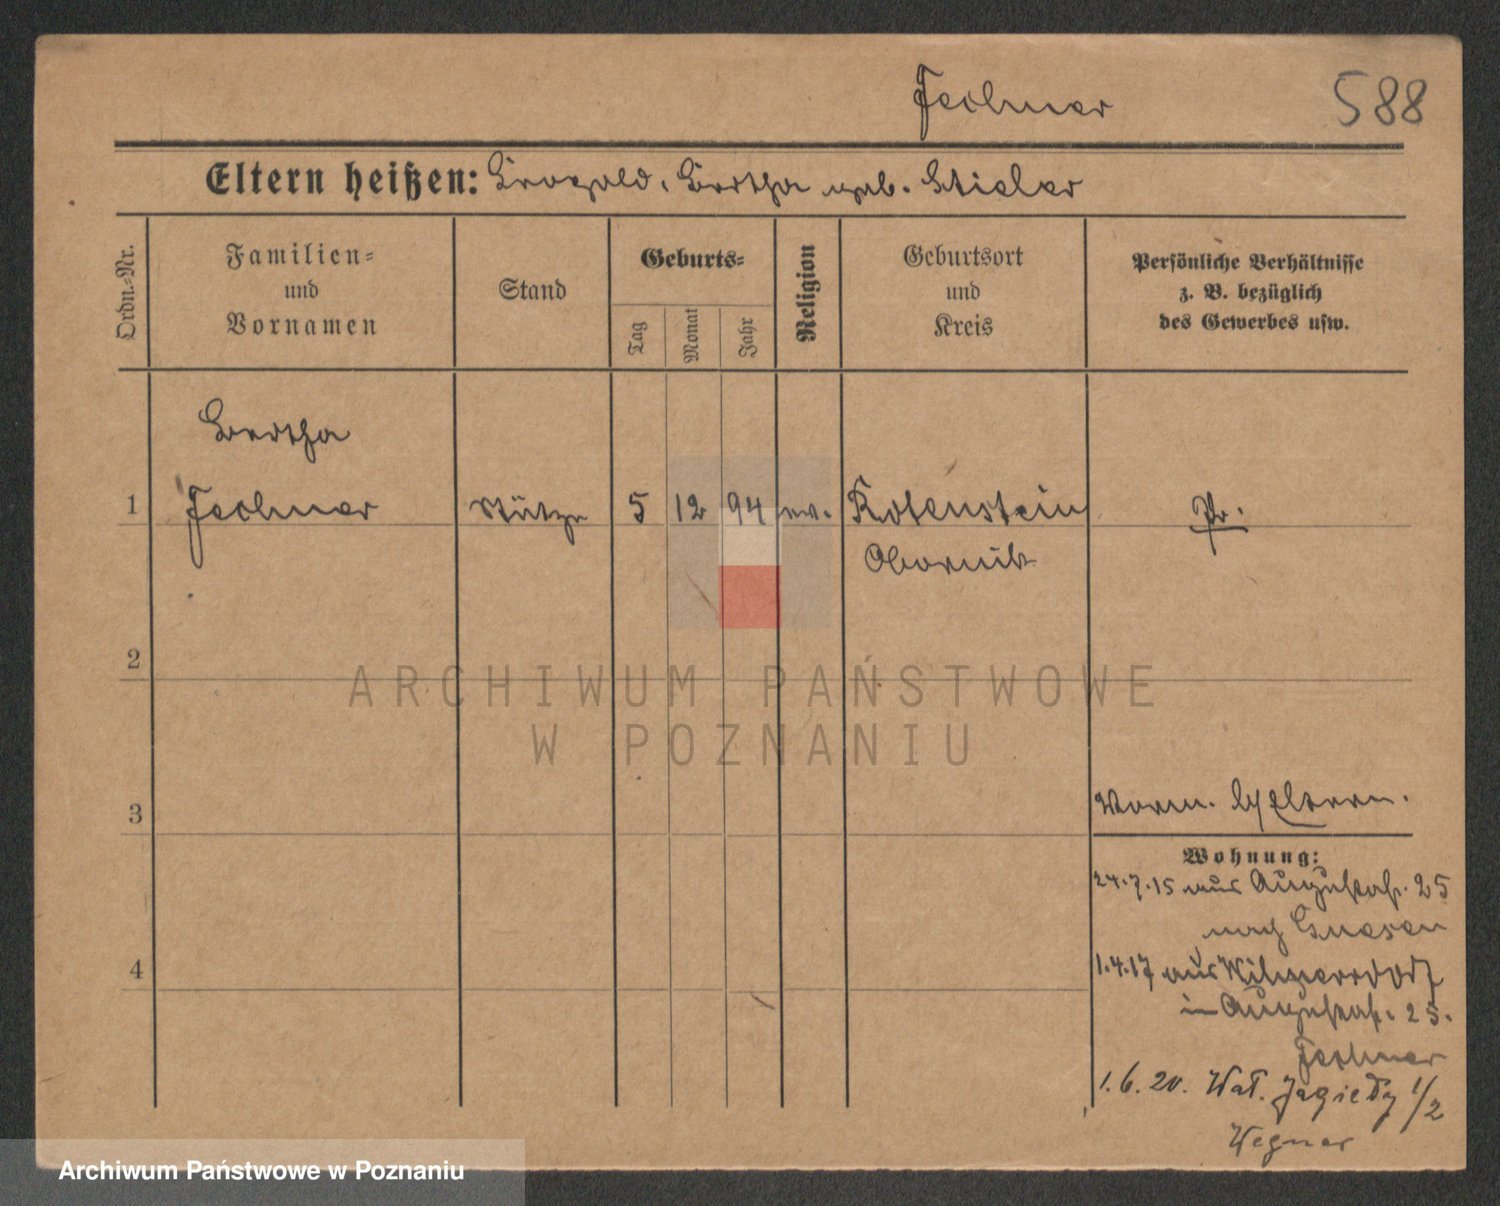 Fechner 588
Eltern heißen: Leopold, Bertha geb. Stieler
Ordn.-Nr.
Familien-
und
Vornamen
Stand
Geburts-
Tag
Monat
Jahr
Religion
Geburtsort
und
Kreis
Persönliche Verhältnisse
z. B. bezüglich
des Gewerbes usw.
Bertha
1 Fechner Stütze 5 12 94 ev. Rotenstein Pr.
Obornik
2
ARCHIWUM PAŃSTWOWE
W POZNANIU
3
Eltern.
Wohnung:
24.7.15 aus Augustastr. 25
nach Gnesen
4
1.4.17 aus Wilmersdorf
in Augustastr. 25.
Fechner
1.6.20. Wał. Jagiełły 1/2
Wegner
Archiwum Państwowe w Poznaniu